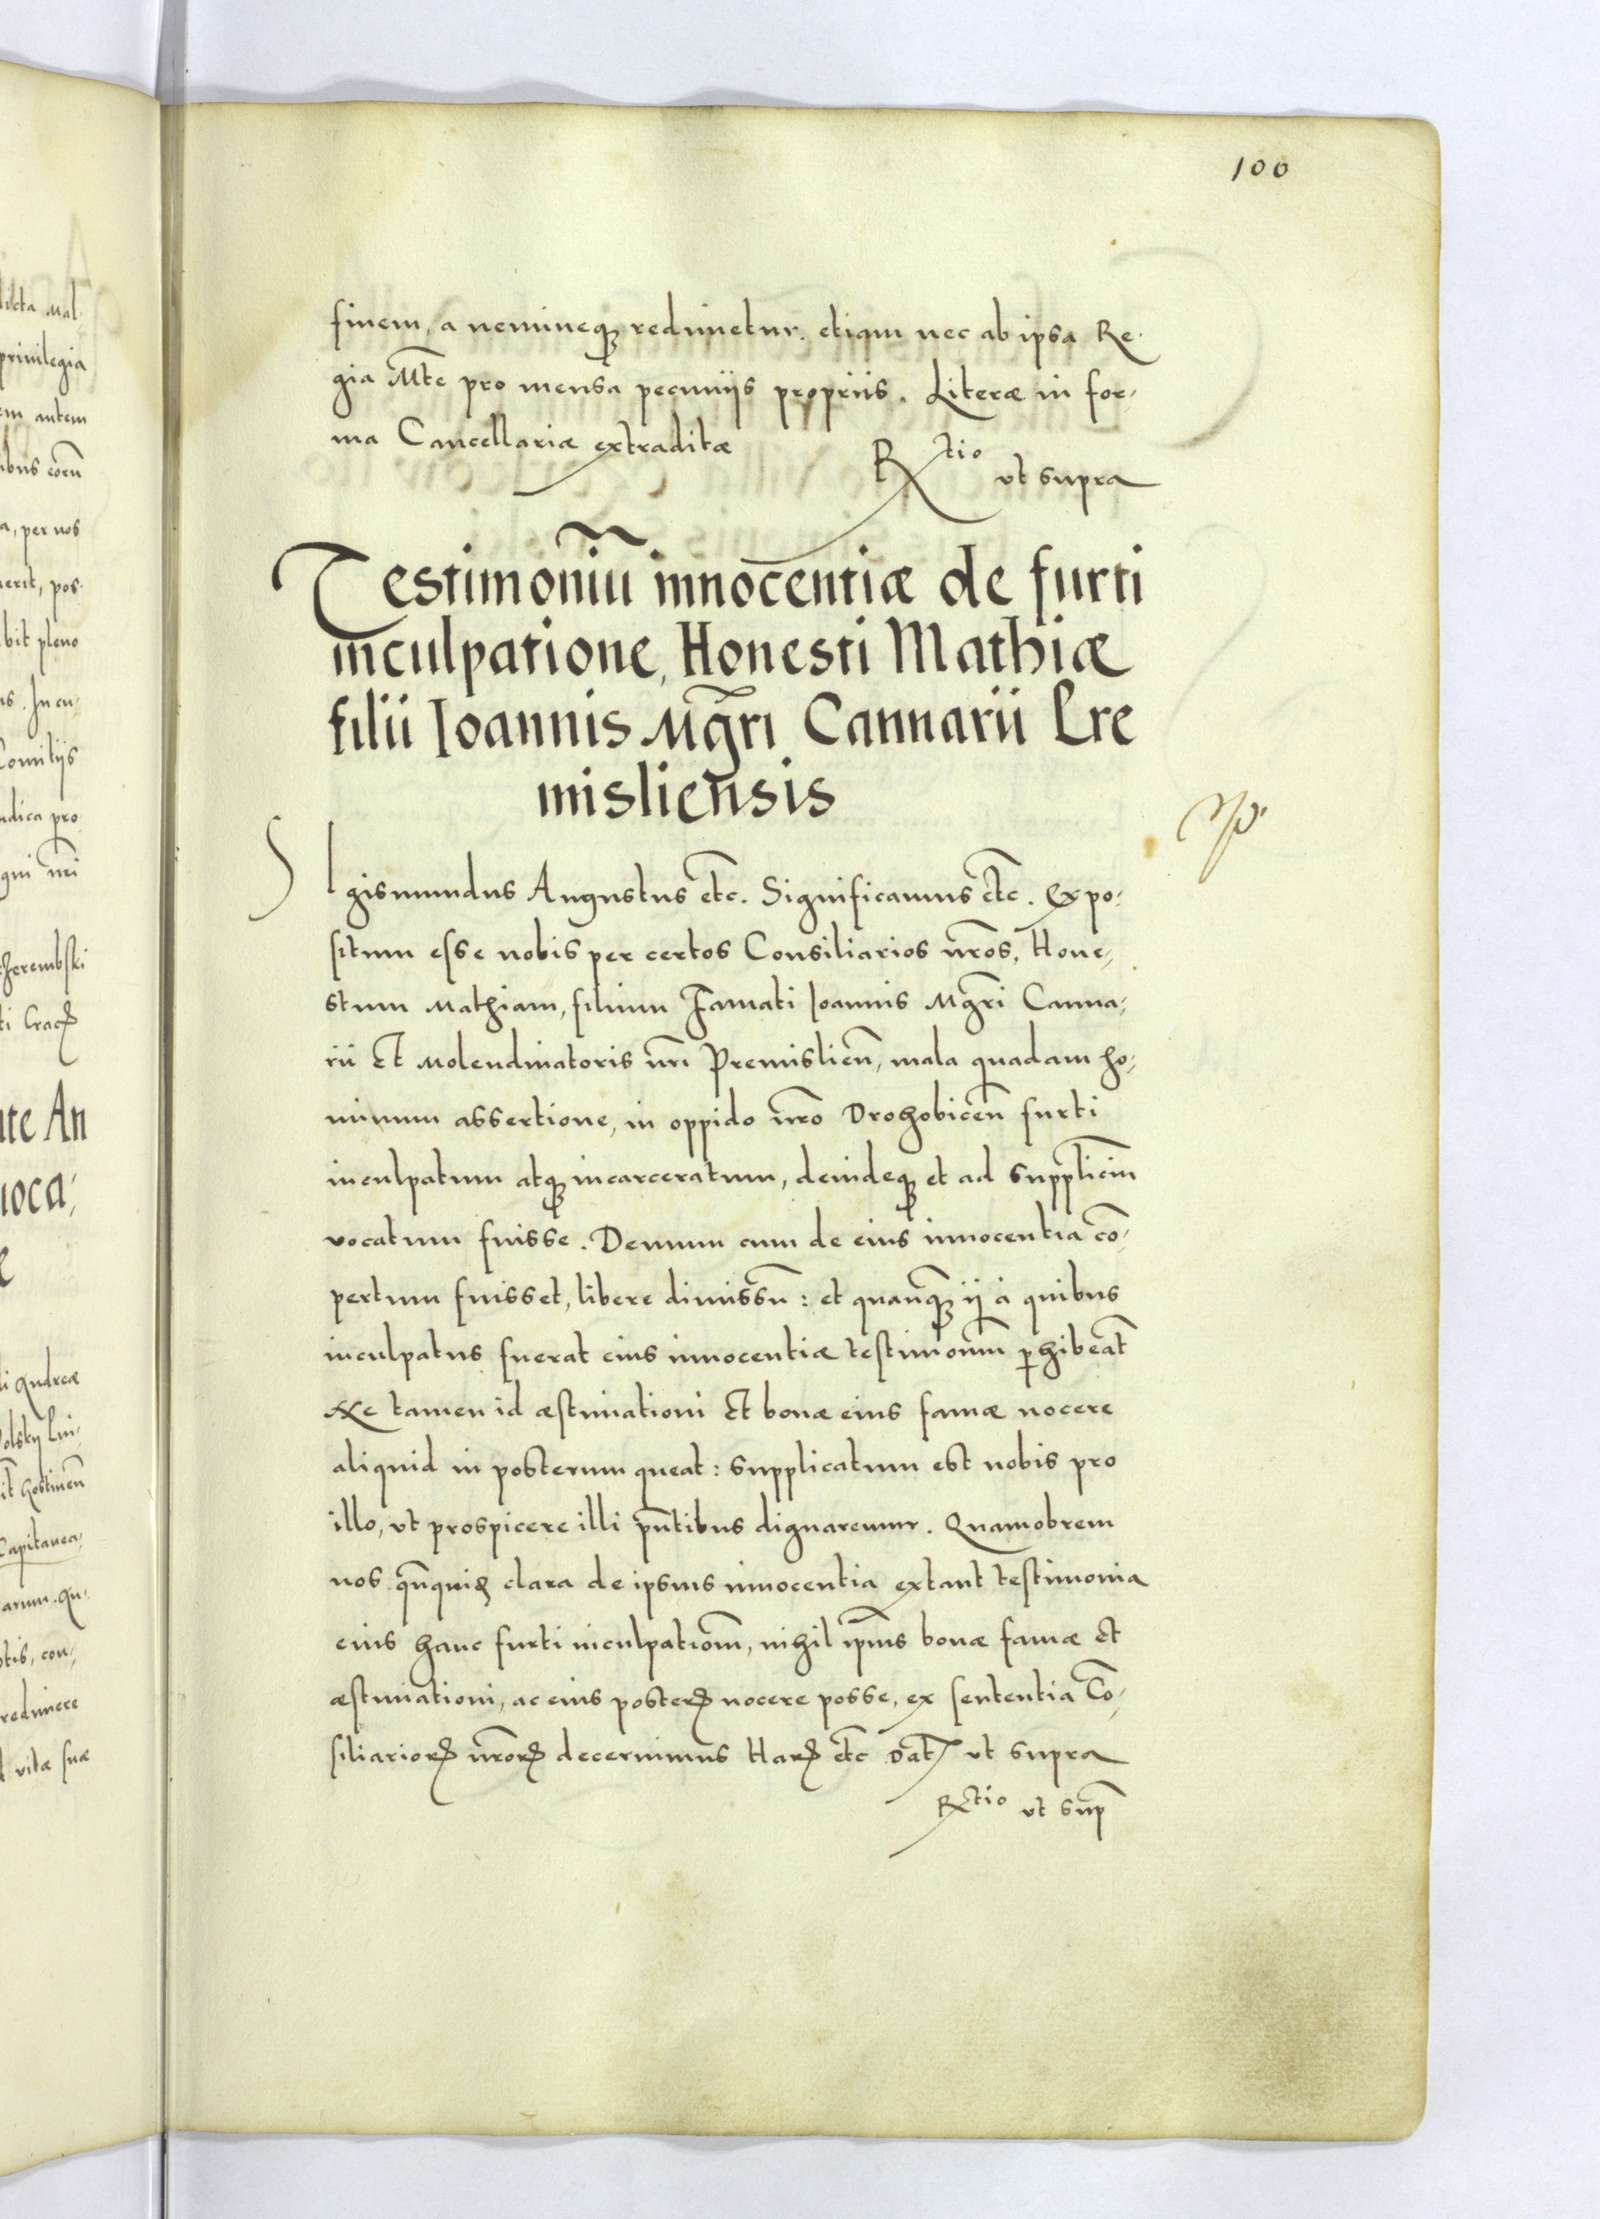 100
finem, a nemineqꝫ redimetur. etiam nec ab ipsa Re-
gia Mt̃e pro mensa pecuniis propriis. Literæ in for-
ma Cancellariæ extraditæ
Rtio ut supra
Testimoniũ innocentiæ de furti
inculpatione, Honesti Mathiæ
filii Ioannis Mgr̃i Cannarii Pre
misliensis
SIgismundus Augustus etc̃. Significamus etc̃. Expo-
situm esse nobis per certos Consiliarios nr̃os, Hone-
stum Mathiam, filium Famati Ioannis Mgr̃i Canna-
rii et Molendinatoris nr̃i Premislien̄, mala quadam ho-
minum assertione, in oppido nr̃o Drohobicen̄ furti
inculpatum atqꝫ incarceratum, deindeqꝫ et ad suppliciũ
vocatum fuisse. Demum cum de eius innocentia cõ-
pertum fuisset, libere dimissũ: et quanq̃ꝫ ij à quibus
inculpatus fuerat eius innocentiæ testimoniũ ꝑhibeãt
Ne tamen id æstimationi et bonæ eius famæ nocere
aliquid in posterum queat: supplicatum est nobis pro
illo, ut prospicere illi pñtibus dignaremur. Quamobrem
nos qñquidẽ clara de ipsius innocentia extant testimonia
eius hanc furti inculpationẽ, nihil ip̃ius bonæ famæ et
æstimationi, ac eius posterꝝ nocere posse, ex sententia Cõ-
siliariorꝝ nr̃orꝝ decernimus Harꝝ etc̃ Dat̃ ut supra
Rtio ut sup̃